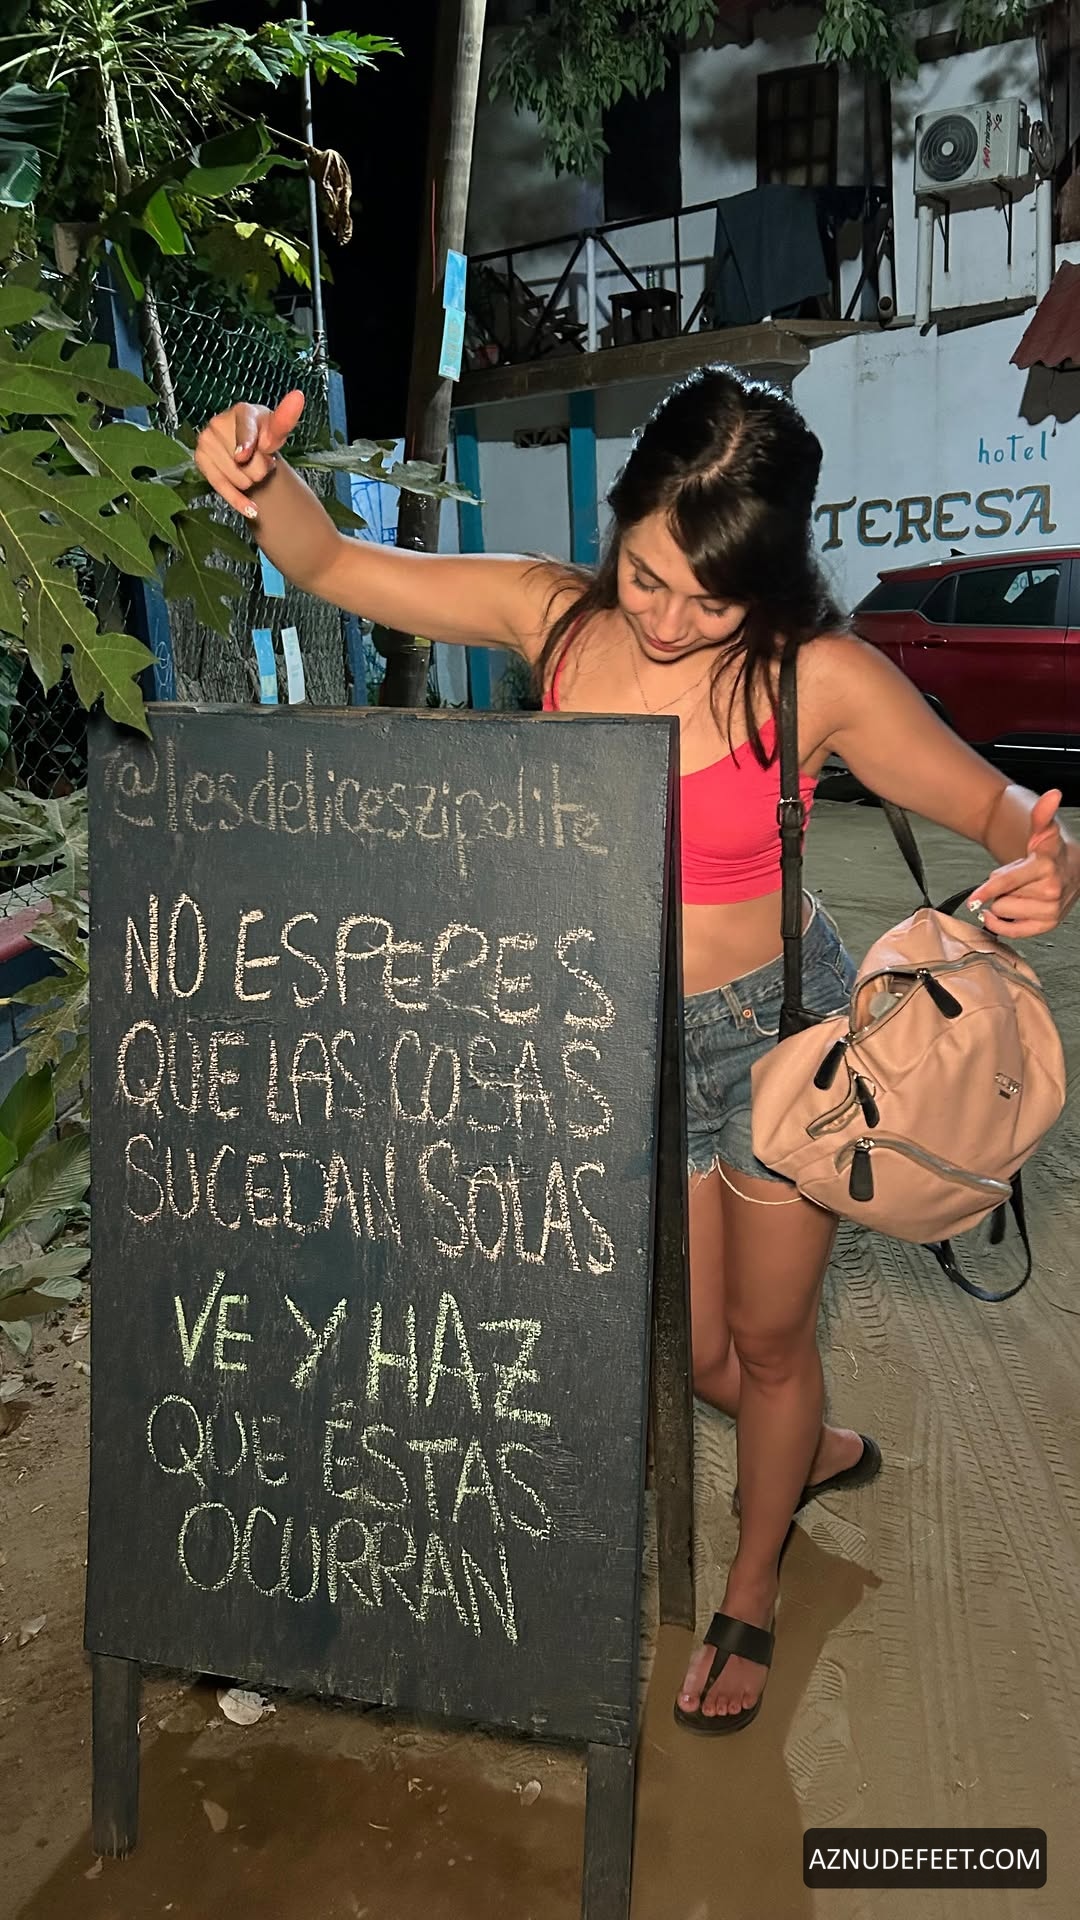 mirage X2
hotel
TERESA
@lasdeliceszipolite
NO ESPERES
QUE LAS COSAS
SUCEDAN SOLAS
VE Y HAZ
QUE ÉSTAS
OCURRAN
AZNUDEFEET.COM